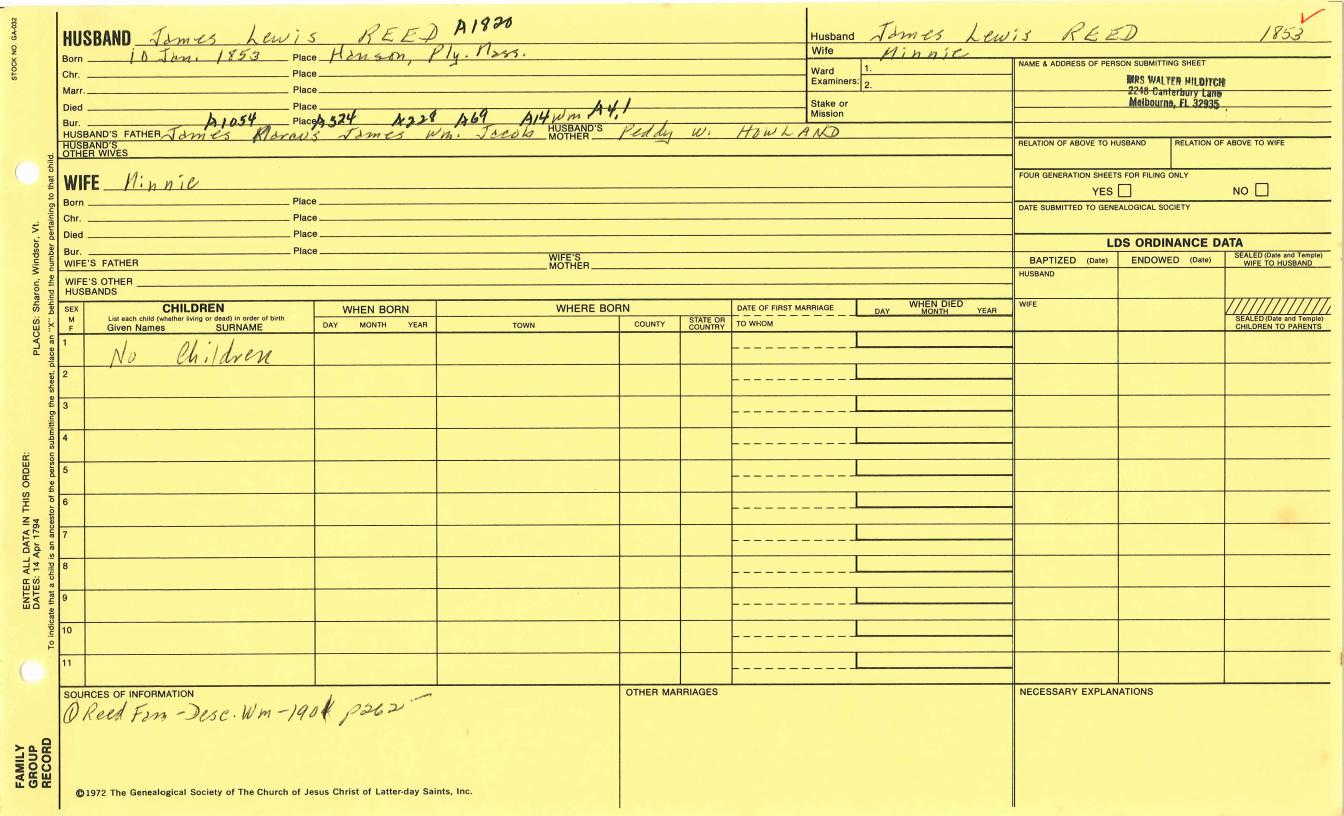 STOCK NO. GA-032
HUSBAND James Lewis REED A1820
Born 10 Jan. 1853 Place Hanson, Ply. Mass.
Chr. Place
Marr. Place
Died Place
Bur. A1054 Place A524 A228 A69 A14 Wm A4.1
HUSBAND'S FATHER James Marcus James Wm. Jacob HUSBAND'S MOTHER Peddy W. HOWLAND
HUSBAND'S OTHER WIVES
Husband James Lewis REED 1853
Wife Minnie
Ward Examiners: 1.
2.
Stake or Mission
NAME & ADDRESS OF PERSON SUBMITTING SHEET
MRS WALTER HILDITCH
2248 Canterbury Lane
Melbourne, FL 32935
RELATION OF ABOVE TO HUSBAND RELATION OF ABOVE TO WIFE
FOUR GENERATION SHEETS FOR FILING ONLY
YES NO
DATE SUBMITTED TO GENEALOGICAL SOCIETY
WIFE Minnie
Born Place
Chr. Place
Died Place
Bur. Place
WIFE'S FATHER WIFE'S MOTHER
WIFE'S OTHER HUSBANDS
LDS ORDINANCE DATA
BAPTIZED (Date) ENDOWED (Date) SEALED (Date and Temple) WIFE TO HUSBAND
HUSBAND
WIFE
SEALED (Date and Temple) CHILDREN TO PARENTS
SEX M F
CHILDREN
List each child (whether living or dead) in order of birth
Given Names SURNAME
WHEN BORN
DAY MONTH YEAR
WHERE BORN
TOWN COUNTY STATE OR COUNTRY
DATE OF FIRST MARRIAGE
TO WHOM
WHEN DIED
DAY MONTH YEAR
1 No Children
2
3
4
5
6
7
8
9
10
11
SOURCES OF INFORMATION
① Reed Fam - Desc. Wm - 1901 p262
OTHER MARRIAGES
NECESSARY EXPLANATIONS
©1972 The Genealogical Society of The Church of Jesus Christ of Latter-day Saints, Inc.
FAMILY GROUP RECORD
ENTER ALL DATA IN THIS ORDER:
DATES: 14 Apr 1794
PLACES: Sharon, Windsor, Vt.
To indicate that a child is an ancestor of the person submitting the sheet, place an "X" behind the number pertaining to that child.